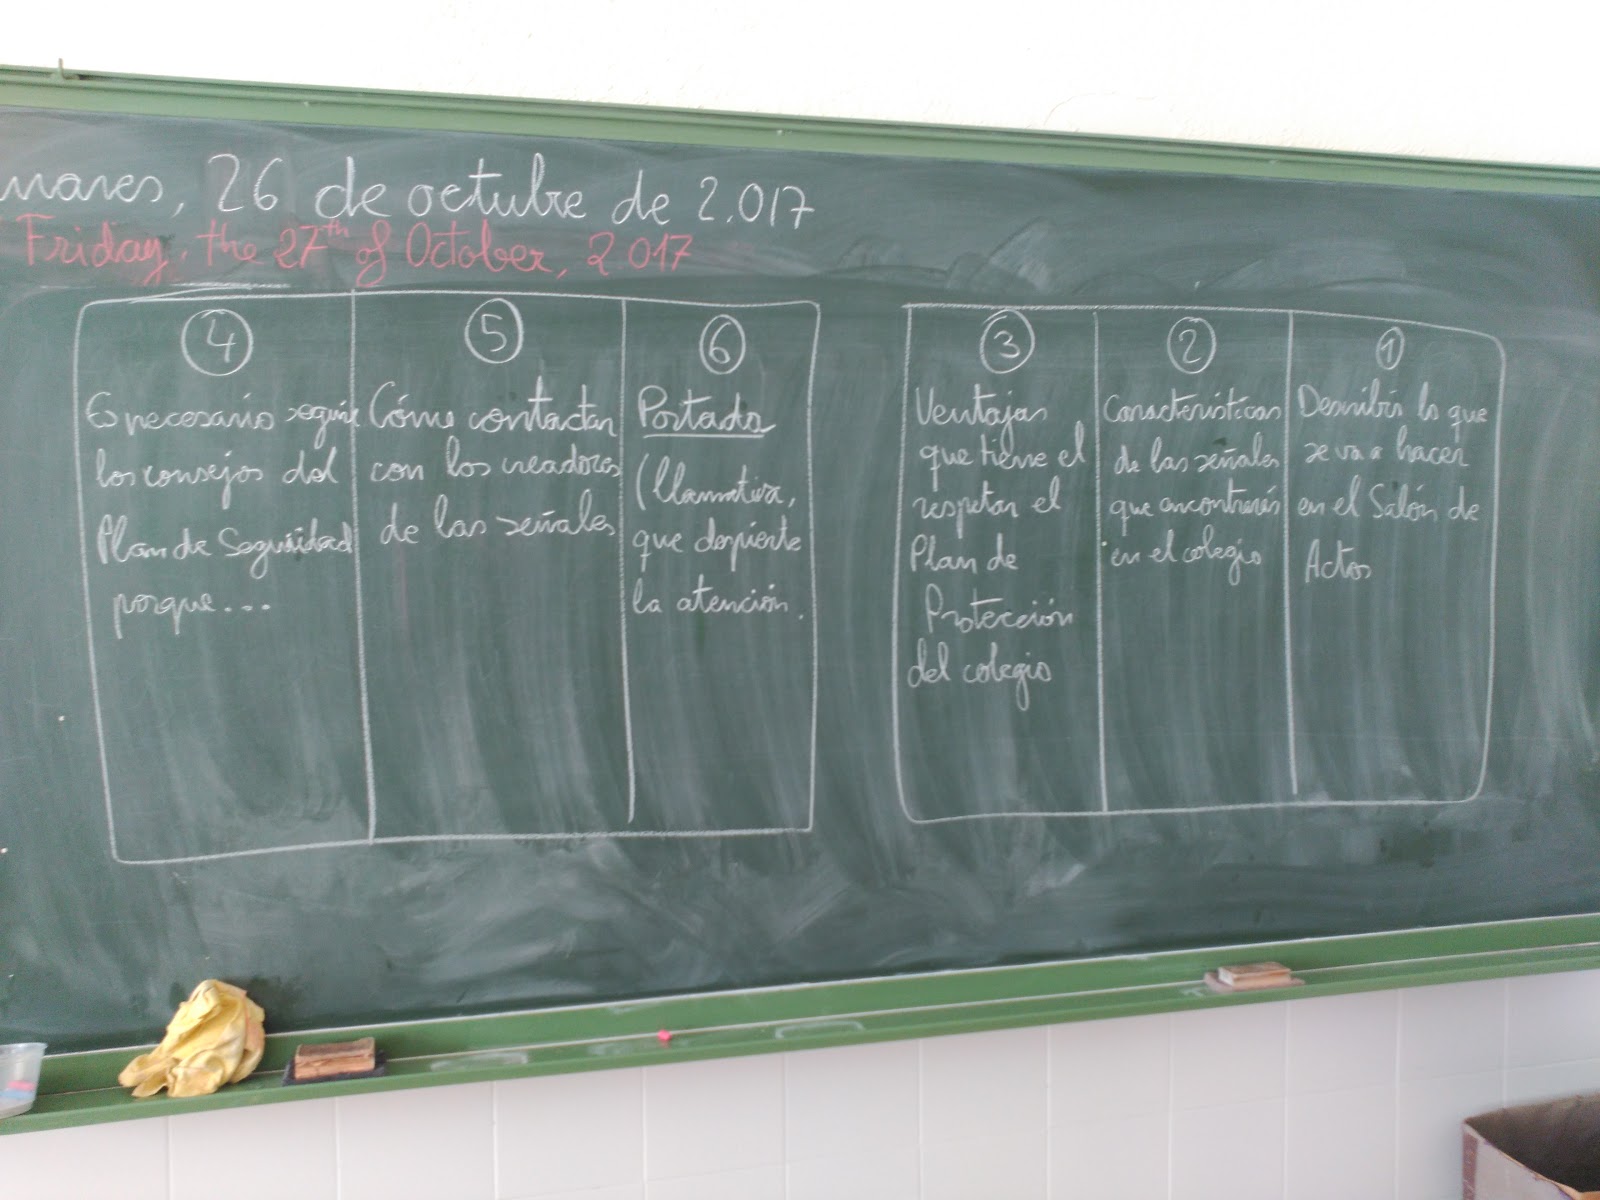 nares, 26 de octubre de 2.017
Friday, the 27th of October, 2017
4
Es necesario seguir
los consejos del
Plan de Seguridad
porque...
5
Cómo contactar
con los creadores
de las señales
6
Portada
(llamativa,
que despierte
la atención.
3
Ventajas
que tiene el
respetar el
Plan de
Protección
del colegio
2
Características
de las señales
que encontrarás
en el colegio
1
Describir lo que
se va a hacer
en el Salón de
Actos